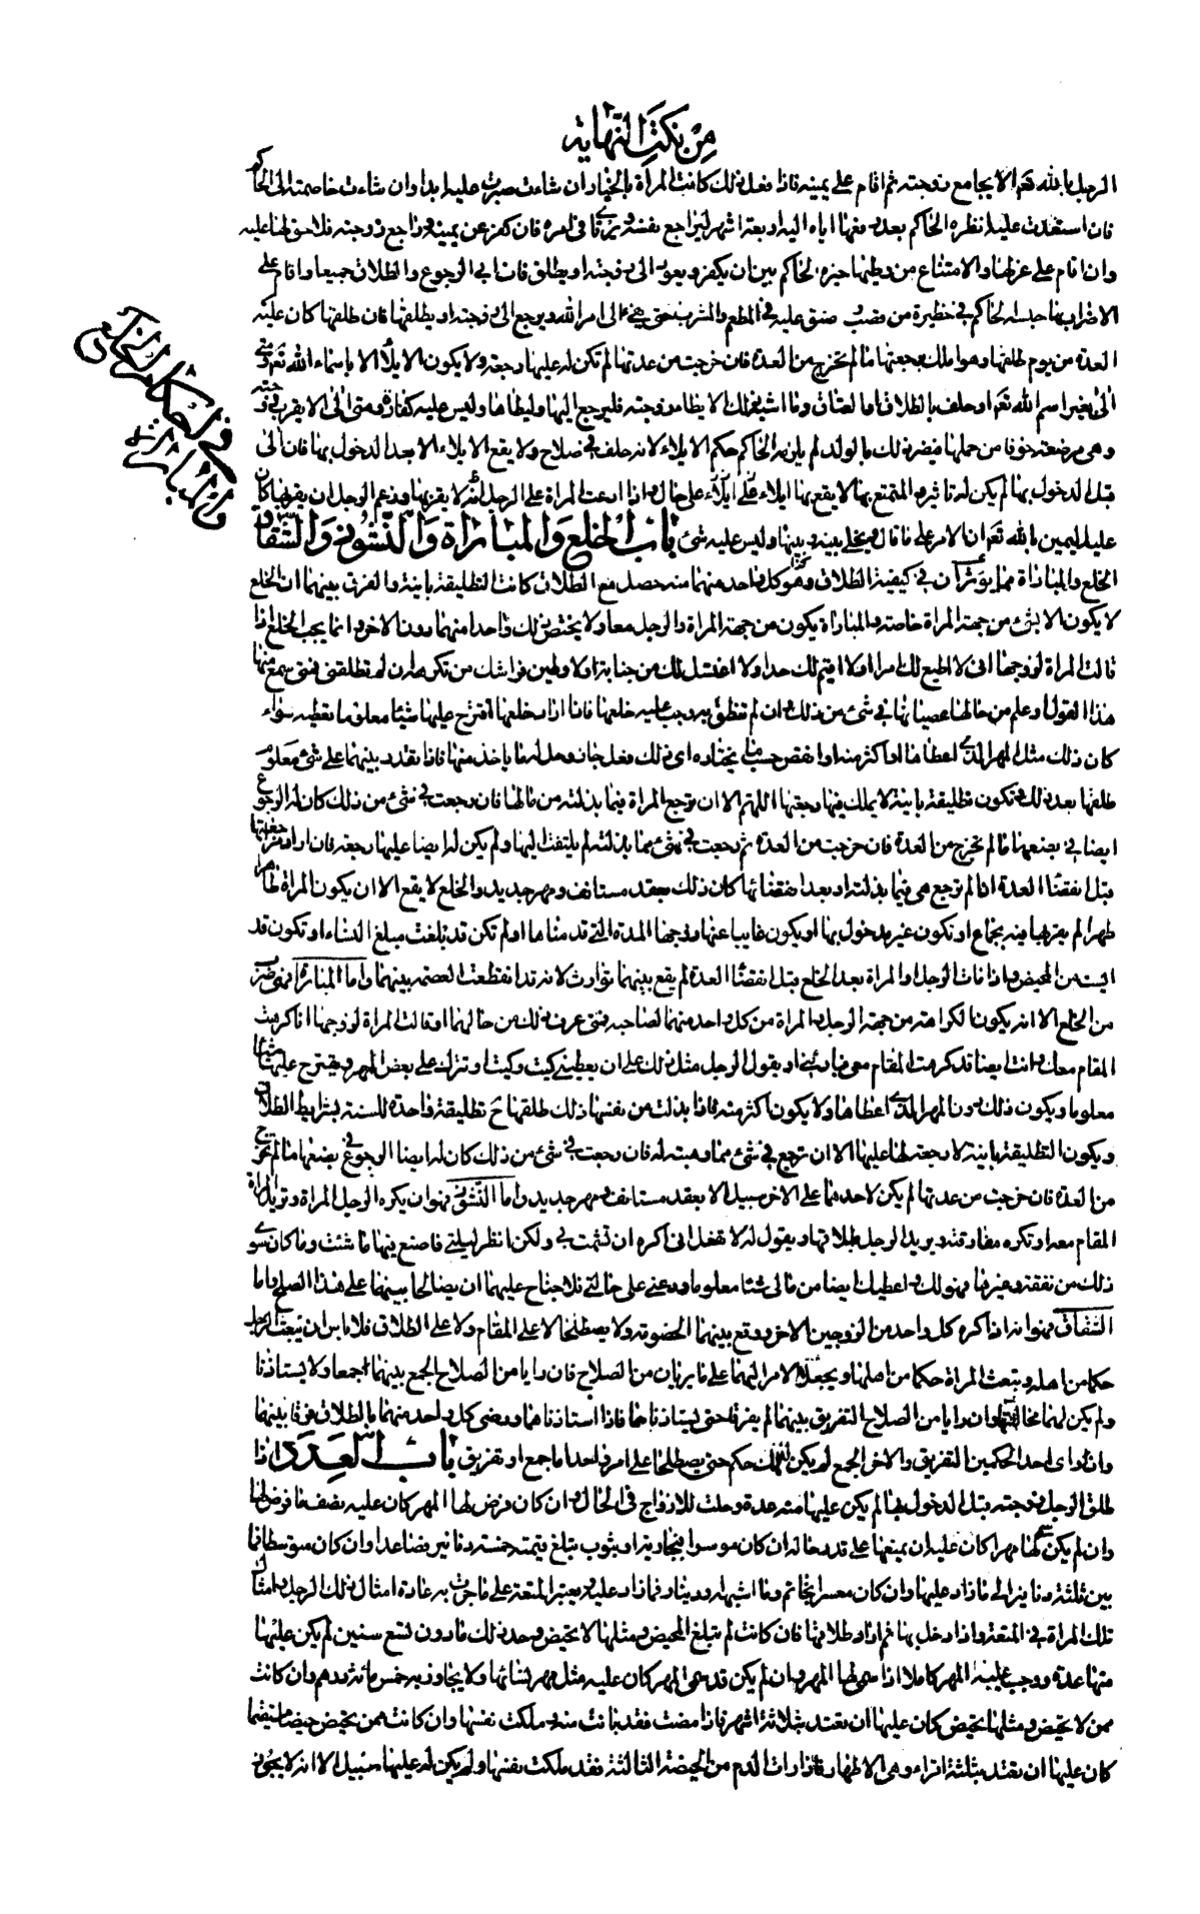 من نكت النهاية
الرجل بالله تعم الا يجامع زوجته ثم اقام على يمينه فاذا فعل ذلك كانت المراة بالخيار ان شاءت صبرت عليه ابدا وان شاءت خاصمته الى الحاكم
فان استعدت عليه انظره الحاكم بعد رفعها اياه اليه اربعة اشهر ليراجع نفسه ويرتاى فى امره فان كفر عن يمينه وراجع زوجته فلا حق لها عليه
وان اقام على عزلها والامتناع من وطيها خيره الحاكم بين ان يكفر ويعود الى زوجته او يطلق فان ابى الرجوع والطلاق جميعا واقام على
الاضرار بها حبسه الحاكم فى حظيرة من قصب وضيق عليه فى المطعم والمشرب حتى يفئ الى امر الله ويرجع الى زوجته او يطلقها فان طلقها كان عليه
العدة من يوم طلقها وهو املك برجعتها ما لم تخرج من العدة فان خرجت من عدتها لم تكن له عليها رجعة ولا يكون الايلاء الا باسماء الله تعم ومتى
الى بغير اسم الله تعم او حلف بالطلاق او العتاق وما اشبه ذلك الا يطا زوجته فليرجع اليها وليطاها وليس عليه كفارة ومتى الى الا يقرب زوجته
وهى مرضعة خوفا من حملها فيضر ذلك بالولد لم يلزمه الحاكم حكم الايلاء لانه حلف فى صلاح ولا يقع الايلاء الا بعد الدخول بها فان الى
قبل الدخول بها لم يكن له تاثير و المتمتع بها لا يقع بها ايلاء على حال واذا ادعت المراة على الرجل انه لا يقربها وزعم الرجل ان يقربها كان
عليه اليمين بالله تعم ان الامر على ما قال ويخلى بينه وبينها وليس عليه شئ باب الخلع والمباراة والنشوز والشقاق
الخلع والمباراة مما يؤثران فى كيفية الطلاق وهو كل واحد منهما متى حصل مع الطلاق كانت التطليقة باينة والفرق بينهما ان الخلع
لا يكون الا بشئ من جهة المراة خاصة والمباراة يكون من جهة المراة والرجل معا ولا يختص ذلك واحدا منهما دون الاخر وانما يجب الخلع اذا
قالت المراة لزوجها انى لا اطيع لك امرا ولا اقيم لك حدا ولا اغتسل لك من جنابة ولاوطين فراشك من تكرهه ان لم تطلقنى فمتى سمع منها
هذا القول او علم من حالها عصيانها فى شئ من ذلك وان لم تنطق به وجب عليه خلعها فاذا اراد خلعها اقترح عليها شيئا معلوما تعطيه سواء
كان ذلك مثل المهر الذى اعطاها او اكثر منه او انقص حسب ما يختاره اى ذلك فعل جاز وحل له ما ياخذ منها فاذا تقرر بينهما على شئ معلوم
طلقها بعد ذلك وتكون تطليقة باينة لا يملك فيها رجعتها اللهم الا ان ترجع المراة فيما بذلته من مالها فان رجعت فى شئ من ذلك كان له الرجوع
ايضا فى بضعها ما لم تخرج من العدة فان خرجت من العدة ثم رجعت فى شئ مما بذلته لم يلتفت اليها ولم يكن له ايضا عليها رجعة فان اراد مراجعتها
قبل انقضاء العدة اذا لم ترجع هى فيما بذلته او بعد انقضائها كان ذلك بعقد مستانف ومهر جديد والخلع لا يقع الا ان يكون المراة طاهرا
طهرا لم يقربها فيه بجماع او تكون غير مدخول بها او يكون غايبا عنها زوجها المدة التى قدمناها او لم تكن قد بلغت مبلغ النساء او تكون قد
ايست من المحيض واذا مات الرجل او المراة بعد الخلع قبل انقضاء العدة لم يقع بينهما توارث لانه قد انقطعت العصمة بينهما واما المباراة فهى ضرب
من الخلع الا انه يكون الكراهة من جهة الرجل والمراة من كل واحد منهما لصاحبه فمتى عرف ذلك من حالهما او قالت المراة لزوجها انا كرهت
المقام معك وانت ايضا قد كرهت المقام معى فبارئنى او يقول الرجل مثل ذلك على ان يعطينى كيت وكيت او تترك على بعض المهر ويقترح عليها شيئا
معلوما ويكون ذلك دون المهر الذى اعطاها ولا يكون اكثر منه فاذا بذلت من نفسها ذلك طلقها ح تطليقة واحدة للسنة بشرايط الطلاق
ويكون التطليقة باينة لا رجعة له عليها الا ان ترجع فى شئ مما وهبته له فان رجعت فى شئ من ذلك كان له ايضا الرجوع فى بضعها ما لم تخرج
من العدة فان خرجت من عدتها لم يكن لاحدهما على الاخر سبيل الا بعقد مستانف ومهر جديد واما النشوز فهو ان يكره الرجل المراة وتريد المراة
المقام معه او تكره مفارقته ويريد الرجل طلاقها ويقول له لا تفعل انى اكره ان تشمت بى ولكن انظر ليلتى فاصنع فيها ما شئت وما كان سوى
ذلك من نفقة وغيرها فهو لك واعطيك ايضا من مالى شيئا معلوما ودعنى على حالتى فلا جناح عليهما ان يصالحا بينهما على هذا الصلح واما
الشقاق فهو انه اذا كره كل واحد من الزوجين الاخر ووقع بينهما الخصومة ولا يصطلحا لا على المقام ولا على الطلاق فلا باس ان يبعث الرجل
حكما من اهله وتبعث المراة حكما من اهلها ويجعلا الامر اليهما على ما يريان من الصلاح فان رايا من الصلاح الجمع بينهما جمعا ولا يستاذنا
ولم يكن لهما مخالفتهما وان رايا من الصلاح التفريق بينهما لم يفرقا حتى يستاذناهما فاذا استاذناهما ورضى كل واحد منهما بالطلاق فرقا بينهما
وان راى احد الحكمين التفريق والاخر الجمع لم يكن لذلك حكم حتى يصطلحا على امر واحد اما جمع او تفريق باب العدد اذا
طلق الرجل زوجته قبل الدخول بها لم يكن عليها منه عدة وحلت للازواج فى الحال وان كان فرض لها المهر كان عليه نصف ما فرض لها
وان لم يكن سمى لها مهرا كان عليه ان يمتعها على قدر حاله ان كان موسرا فبجارية او بثوب تبلغ قيمته خمسة دنانير فصاعدا وان كان متوسطا فما
بين ثلثة دنانير الى ما زاد عليها وان كان معسرا بخاتم وما اشبهه ودينار فما زاد عليه ويعتبر المتعة على ما جرت به عادة امثال ذلك الرجل وامثال
تلك المراة فى المتعة واذا دخل بها ثم اراد طلاقها فان كانت لم تبلغ المحيض ومثلها لا يحيض وحد ذلك ما دون لتسع سنين لم يكن عليها
منها عدة ووجب عليه المهر كاملا اذا سمى لها المهر وان لم يكن قد سمى المهر كان عليه مثل مهر نسائها ولا يجاوز به خمس مائة درهم وان كانت
ممن لا يحيض ومثلها تحيض كان عليها ان تعتد بثلاثة اشهر فاذا مضت فقد بانت منه وملكت نفسها وان كانت ممن تحيض حيضا مستقيما
كان عليها ان تعتد بثلثة اقراء وهى الاطهار فاذا رات الدم من الحيضة الثالثة فقد ملكت نفسها ولم يكن له عليها سبيل الا انه لا يجوز
فى احكام الخلع
والمباراة